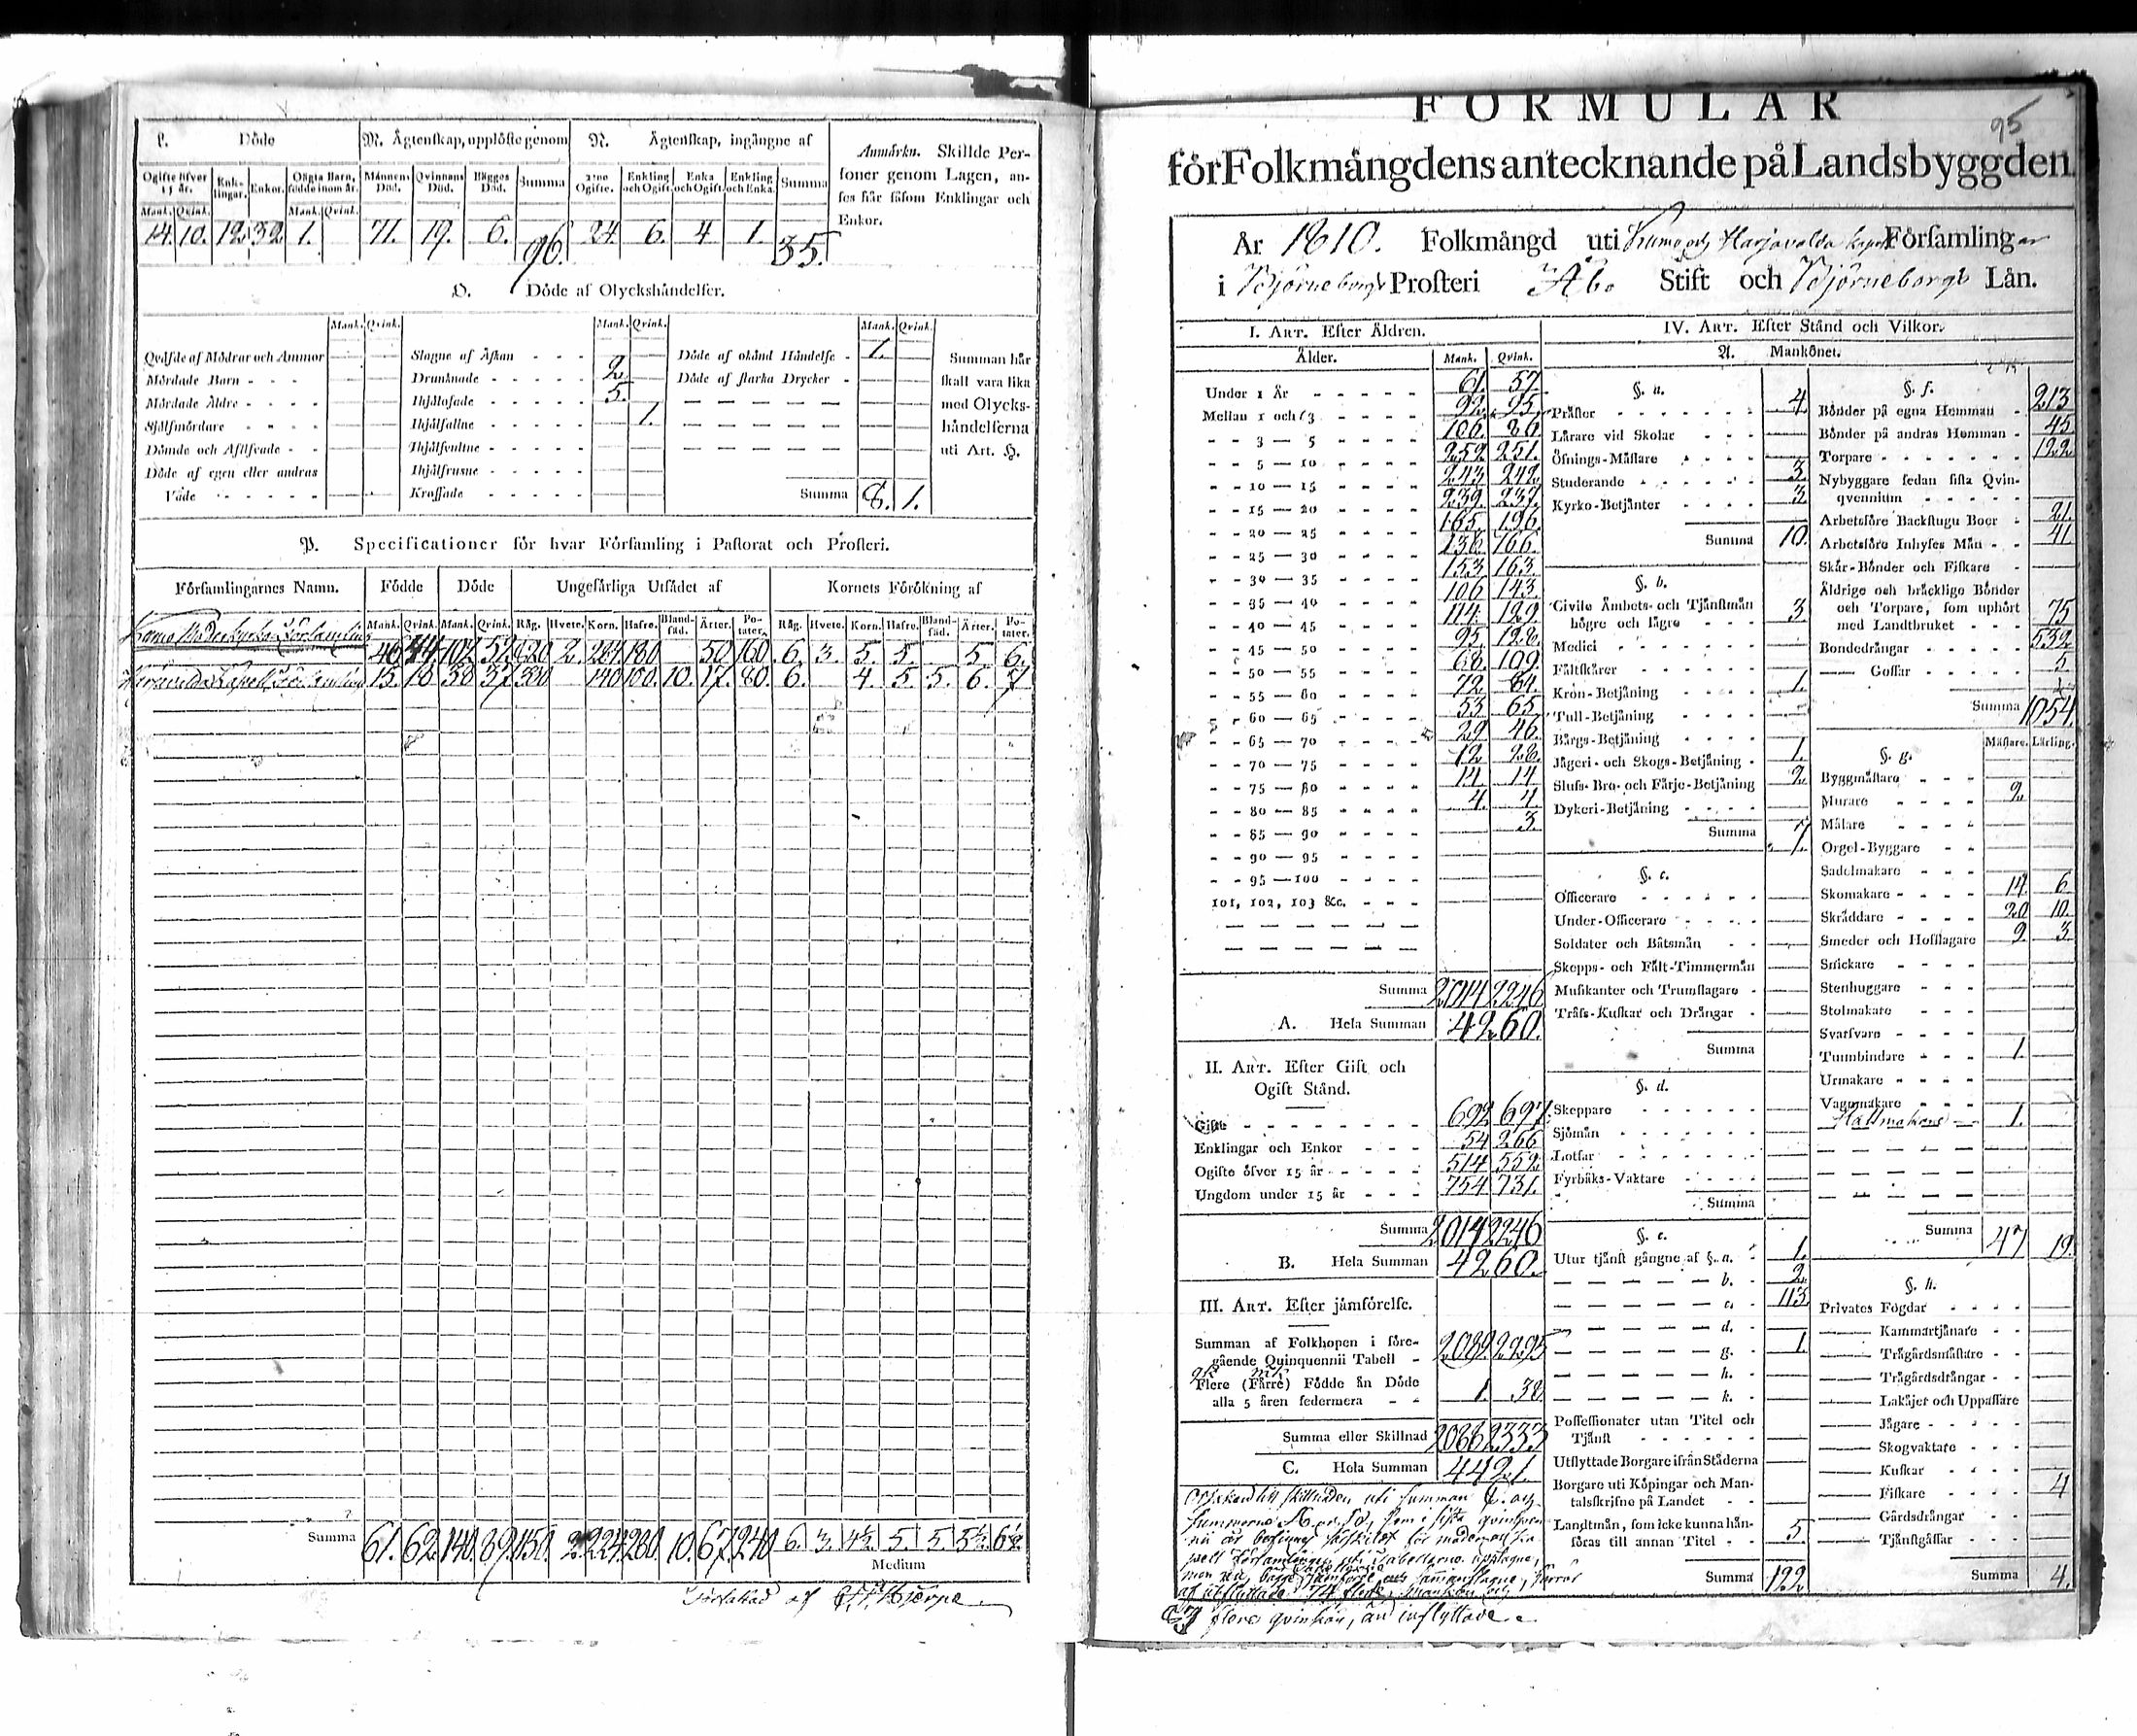 L. Döde
M. Ägtenskap, upplöste genom
N. Ägtenskap, ingångne af
Anmärkn. Skillde Personer genom Lagen, anses här såsom Enklingar och Enkor.
Ogifte öfver 15 år. Enklingar. Enkor. Oägta Barn, födde inom år. Männens Död. Qvinnans Död. Bägges Död. Summa 2:ne Ogifte. Enkling och Ogift. Enka och Ogift. Enkling och Enka. Summa
Mank. Qvink. Mank. Qvink.
14. 10. 12. 32. 1. 71. 19. 6. 96. 24. 6. 4 1. 35.
O. Döde af Olyckshändelser.
Mank. Qvink. Mank. Qvink. Mank. Qvink.
Qväfde af Mödrar och Ammor
Mördade Barn
Mördade Äldre
Sjelfmördare
Dömde och Aflifvade
Döde af egen eller andras
Våde
Slagne af Åskan
Drunknade 2
Ihjälosade 5.
Ihjälfallne 1.
Ihjälsvultne
Ihjälfrusne
Krossade
Döde af okänd Händelse 1.
Döde af starka Drycker
Summa 8. 1.
Summan här
skall vara lika
med Olycks-
händelserna
uti Art. H.
P. Specificationer för hvar Församling i Pastorat och Prosteri.
Församlingarnes Namn. Födde Döde Ungefärliga Utsädet af Kornets Förökning af
Mank. Qvink. Mank. Qvink. Råg. Hvete. Korn. Hafre. Blandsäd. Ärter. Potater. Råg. Hvete. Korn. Hafre. Blandsäd. Ärter. Potater.
Kumo Moderkyrko Församling 46 44 102 52 820 2. 284 180 50 160 6. 3. 5. 5. 5 6.
Kapell Församling 15. 18 38 37 330 140 100. 10. 17. 80. 6. 4. 5. 5. 6. 7
Summa 61. 62. 140. 89. 1150. 2. 280. 10. 67. 240 6. 3. 4½ 5. 5 5½ 6½
Medium
af
FORMULAR
95
för Folkmängdens antecknande på Landsbyggden.
År 1810. Folkmängd uti Kumo och Harjavalda kapell Församlingar
i Björneborgs Prosteri Åbo Stift och Björneborgs Län.
I. Art. Efter Åldren.
Ålder. Mank. Qvink.
Under 1 År 61. 57.
Mellan 1 och 3 92. 95.
3 — 5 106. 86.
5 — 10 252 251.
10 — 15 243 242.
15 — 20 239. 237.
20 — 25 165. 196.
25 — 30 138. 166.
30 — 35 153. 163.
35 — 40 106 143.
40 — 45 114. 129.
45 — 50 95. 128.
50 — 55 68. 109.
55 — 60 72. 84.
60 — 65 53 65.
65 — 70 29 46.
70 — 75 12 28.
75 — 80 14. 14.
80 — 85 4. 4.
85 — 90 3.
90 — 95
95 — 100
101, 102, 103 &c.
Summa 2014 2246
A. Hela Summan 4260.
II. Art. Efter Gift och
Ogift Stånd.
Gifte 692 697.
Enklingar och Enkor 54 266
Ogifte öfver 15 år 514 552
Ungdom under 15 år 754 731.
Summa 2014 2246
B. Hela Summan 4260.
III. Art. Efter jämförelse.
Summan af Folkhopen i före-
gående Quinquennii Tabell 2089. 2295
Flere (Färre) Födde än Döde
alla 5 åren sedermera 1. 38
Summa eller Skillnad 2088 2333
C. Hela Summan 4421.
skillnaden uti summan C. och
flere qvinkön, än inflyttade.
IV. Art. Efter Stånd och Vilkor.
A. Mankönet.
§. a.
Präster 4.
Lärare vid Skolar
Öfnings-Mästare
Studerande 3.
Kyrko-Betjänter 3.
Summa 10.
§. b.
Civile Ämbets- och Tjänstmän
högre och lägre 3
Medici
Fältskärer
Kron-Betjäning 1.
Tull-Betjäning
Bärgs-Betjäning
Jägeri- och Skogs-Betjäning 1.
Sluss- Bro- och Färje-Betjäning 2
Dykeri-Betjäning
Summa 7.
§. c.
Officerare
Under-Officerare
Soldater och Båtsmän
Skepps- och Fält-Timmermän
Musikanter och Trumslagare
Träss-Kuskar och Drängar
Summa
§. d.
Skeppare
Sjömän
Lotsar
Fyrbåks-Vaktare
Summa
§. e.
Utur tjänst gångne af §. a. 1.
b. 2.
c. 113
d.
g. 1.
h.
k.
Possessionater utan Titel och
Tjänst
Utflyttade Borgare ifrån Städerna
Borgare uti Köpingar och Man-
talsskrifne på Landet
Landtmän, som icke kunna hän-
föras till annan Titel 5.
Summa 122
§. f.
Bönder på egna Hemman 213
Bönder på andras Hemman 45
Torpare 122
Nybyggare sedan sista Qvin-
qvennium
Arbetsföre Backstugu Boer 21.
Arbetsföre Inhyses Män 41
Skär-Bönder och Fiskare
Äldrige och bräcklige Bönder
och Torpare, som uphört
med Landtbruket 75
Bondedrängar 532
—— Gossar 5
Summa 1054.
Mästare. Lärling.
§. g.
Byggmästare
Murare 2
Målare
Orgel-Byggare
Sadelmakare
Skomakare 14 6
Skräddare 20 10.
Smeder och Hofslagare 9. 3.
Snickare
Stenhuggare
Stolmakare
Svarfvare
Tunnbindare 1.
Urmakare
Vagnmakare
Hattmakare 1.
Summa 47 19.
§. h.
Privates Fogdar
—— Kammartjänare
—— Trägårdsmästare
—— Trägårdsdrängar
—— Lakäjer och Uppassare
—— Jägare
—— Skogvaktare
—— Kuskar
—— Fiskare 4
—— Gårdsdrängar
—— Tjänstgåssar
Summa 4.